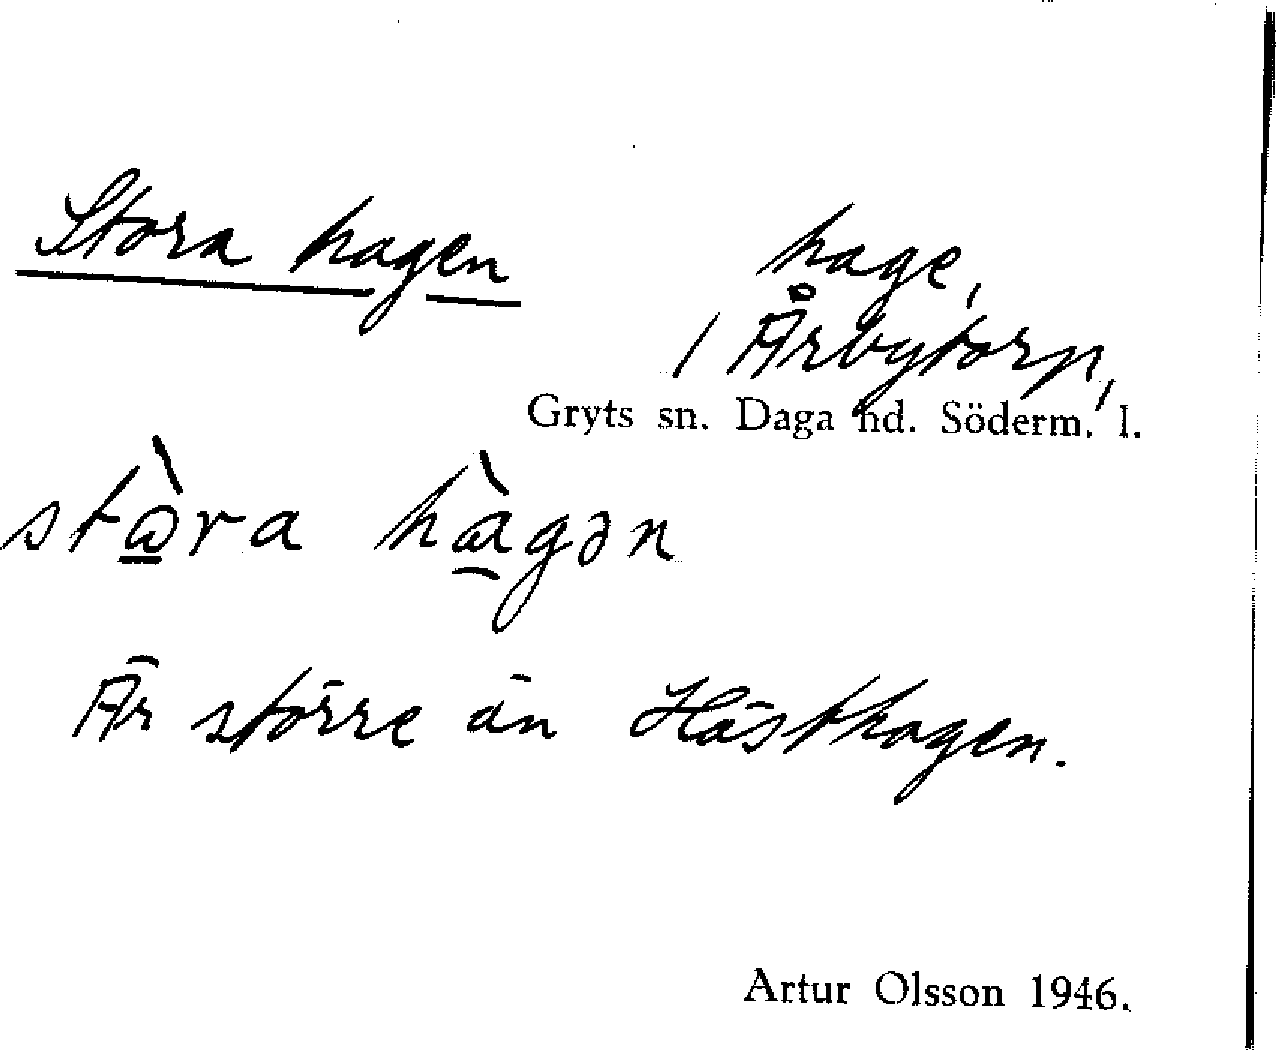 Stora hagen hage,
/ Årbytorp,
Gryts sn. Daga hd. Söderm. l.
stὼ̲ra hὰ̱gən
Är större än Hästhagen.
Artur Olsson 1946.